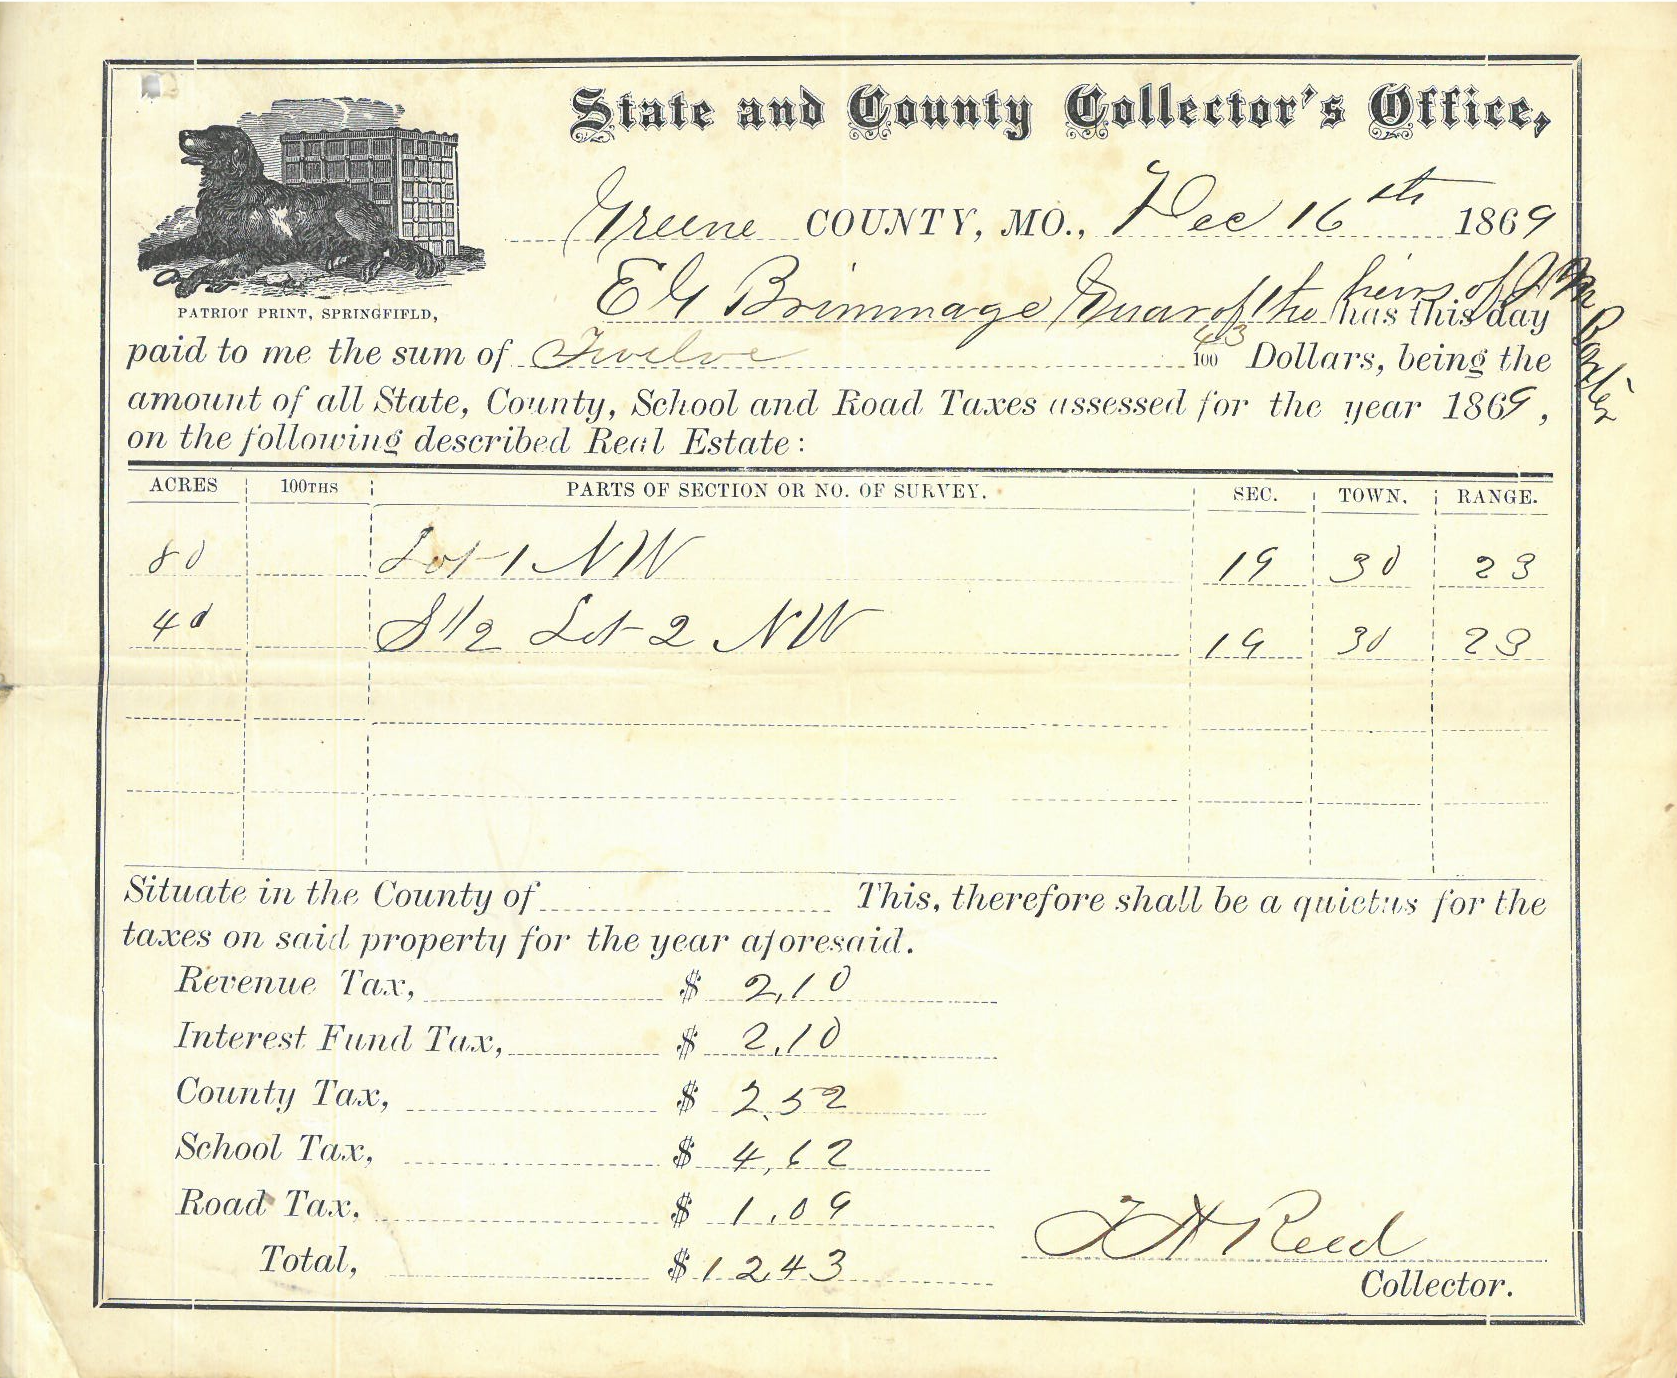 State and County Collector's Office,
Greene COUNTY, MO., Dec 16th 1869
PATRIOT PRINT, SPRINGFIELD,
E G Brimmage Guar of the heirs of J M has this day
paid to me the sum of Twelve 43/100 Dollars, being the
amount of all State, County, School and Road Taxes assessed for the year 1869,
on the following described Real Estate:
ACRES 100THS PARTS OF SECTION OR NO. OF SURVEY. SEC. TOWN. RANGE.
80 Lot 1 NW 19 30 23
40 S 1/2 Lot 2 NW 19 30 23
Situate in the County of This, therefore shall be a quietus for the
taxes on said property for the year aforesaid.
Revenue Tax, $ 2,10
Interest Fund Tax, $ 2,10
County Tax, $ 2,52
School Tax, $ 4,62
Road Tax. $ 1.09
Total, $ 12,43
T H Reed
Collector.